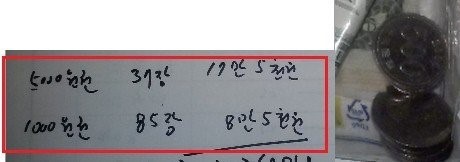 5000원권 37장 17만 5천원
1000원권 85장 8만 5천원